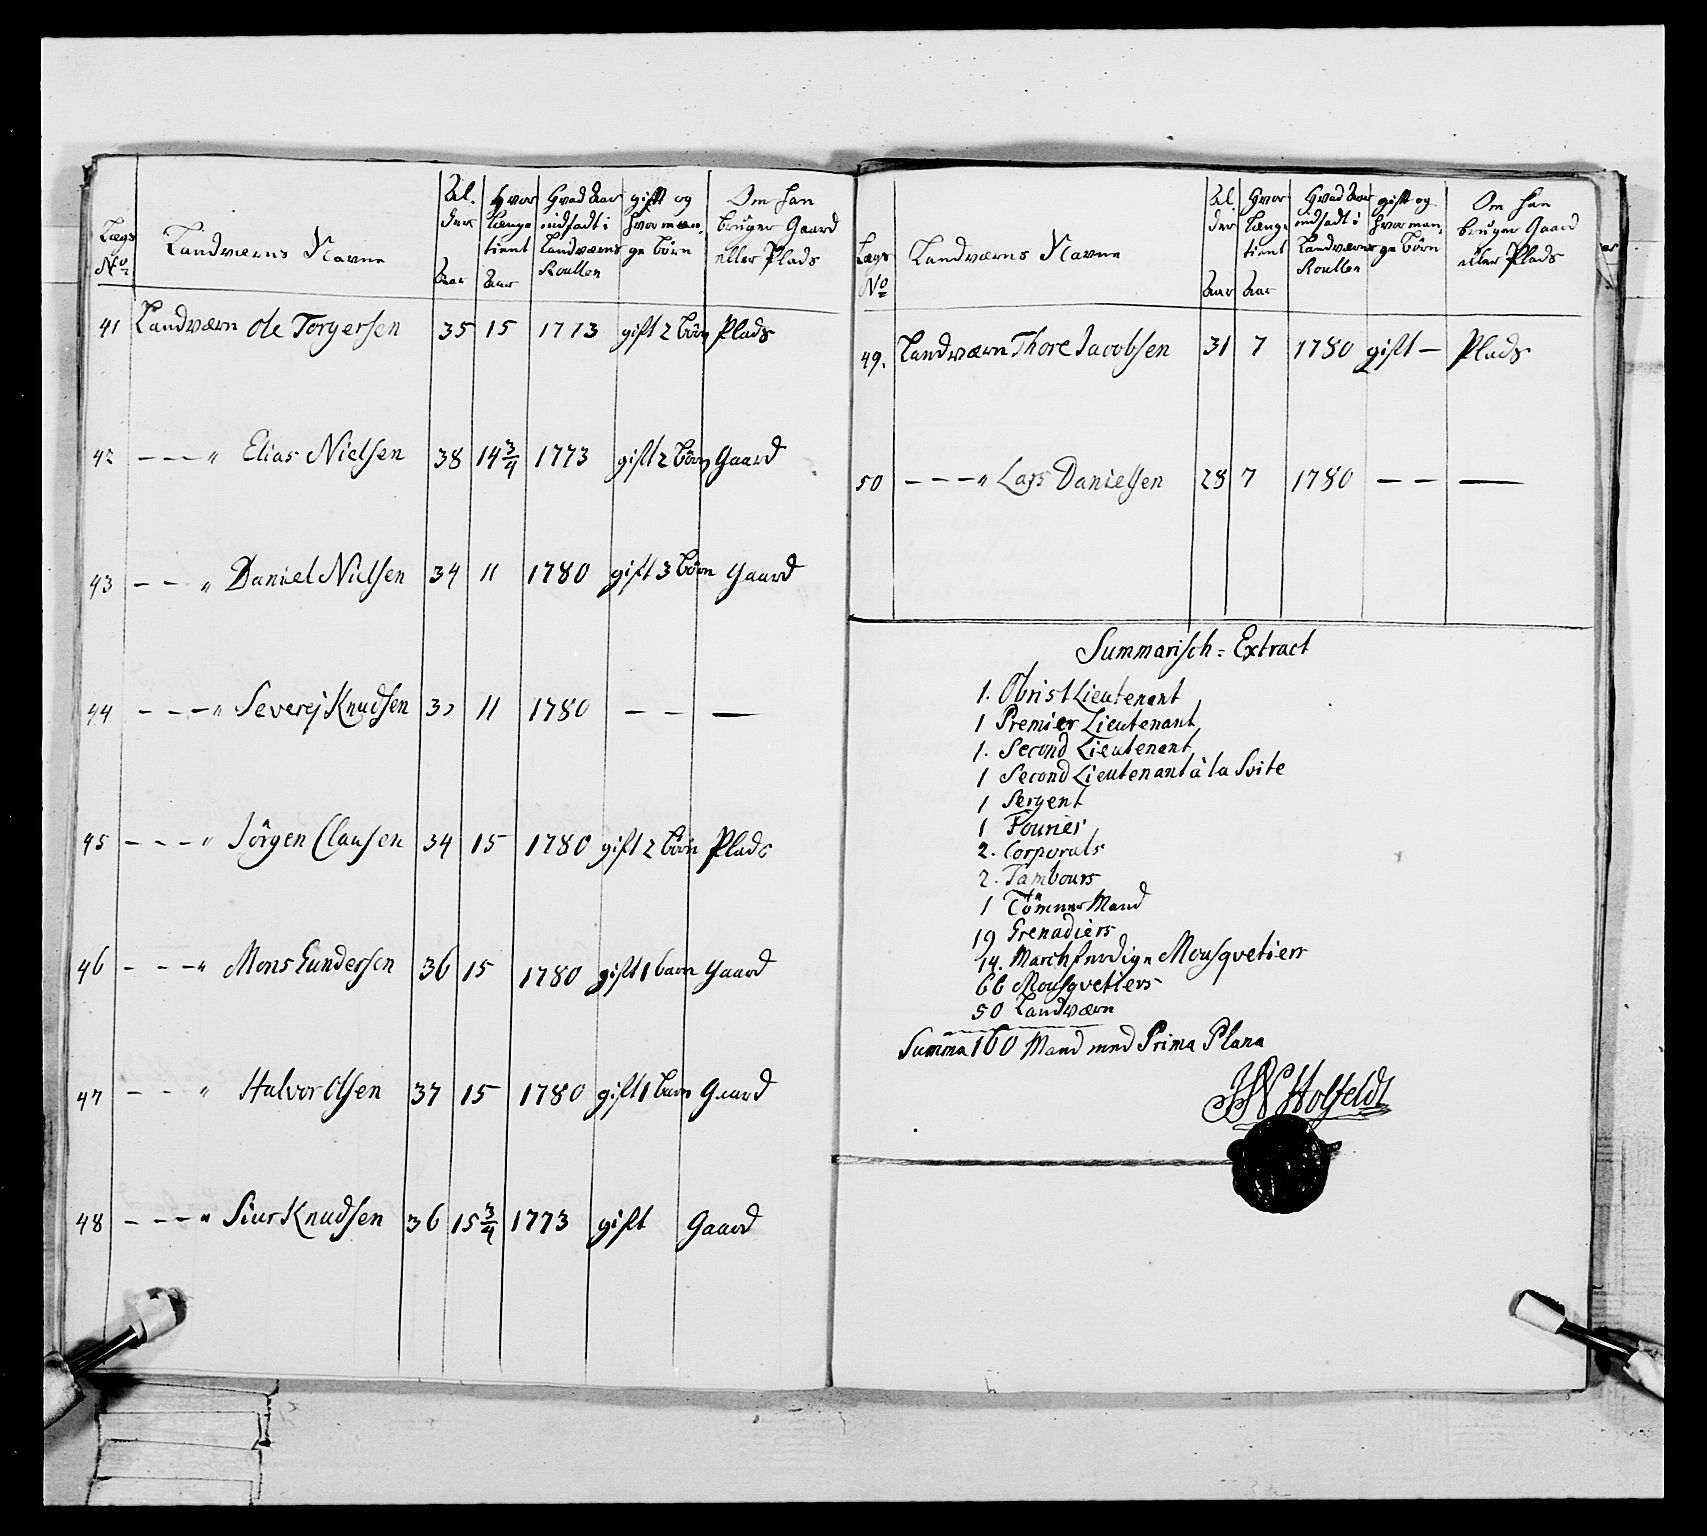 Lægs No
Landværns Navne
Al. der Aar
Hvor længe tient Aar
Hvad Aar indsadt i Landværns Roullen
gift og hvor man, ge börn
Om han bruger Gaard eller Plads
41 Landværn Ole Torgersen 35 15 1773 gift 2 börn Plads
42 — — — " Elias Nielsen 38 14 3/4 1773 gift 2 börn Gaard
43 — — " Daniel Nielsen 34 11 1780 gift 3 börn Gaard
44 — — — " Severej Knudsen 11 1780 — — —
45 — — — " Jörgen Clausen 34 15 1780 gift 2 börn Plads
46 — — — " Mons Gundersen 36 15 1780 gift 1 barn Gaard
47 — — " Halvor Olsen 37 15 1780 gift 1 barn Gaard
48 — — — " Siur Knudsen 36 15 3/4 1773 gift Gaard
Lægs No
Landværns Navne
Al der Aar
Hvor længe tient Aar
Hvad Aar indsadt i Landværns Roullen
gift og hvor man, ge börn
Om han bruger Gaard eller Plads
49. Landværn Thore Jacobsen 31 7 1780 gift — Plads
50 — — — " Lars Danielsen 28 7 1780 — — —
Summarisch = Extract
1. Obrist Lieutenant
1 Premier Lieutenant
1. Second Lieutenant
1 Second Lieutenant à la Svite
1 Sergent
1 Fourier
2. Corporals
2. Tambours
1 Tömmer Mand
19 Grenadiers
14. Marchfærdige Mousqvetiers
66 Mousqvetiers
50 Landværn
Summa 160 Mand med Prima Plana
Holfeldt